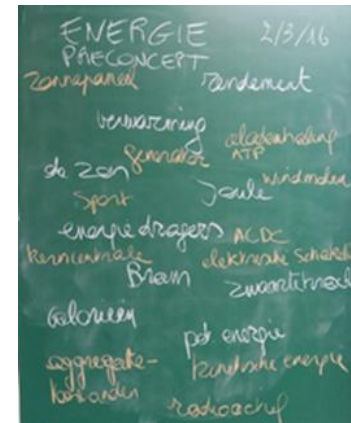 ENERGIE 2/3/16
PRECONCEPT
zonnepaneel rendement
verwarming
ademhaling
generator ATP
de zon windmolen
Sport Joule
energie dragers ACDC
kerncentrale
elektrische schakeling
Brain
zwaartekracht
Calorieën
pot energie
aggregatie-
toestanden
kinetische energie
radioactief